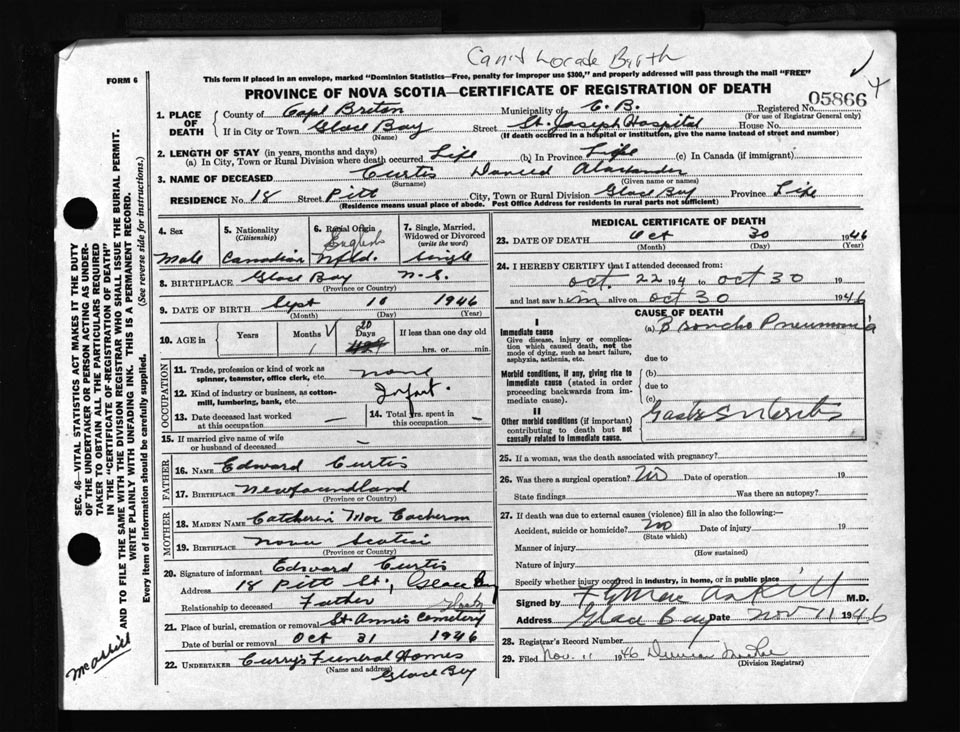 FORM 6
This form if placed in an envelope, marked "Dominion Statistics—Free, penalty for improper use $300," and properly addressed will pass through the mail "FREE"
PROVINCE OF NOVA SCOTIA—CERTIFICATE OF REGISTRATION OF DEATH
05866
1. PLACE OF DEATH County of Cape Breton Municipality of C. B. Registered No.
(For use of Registrar General only)
If in City or Town Glace Bay Street St. Joseph Hospital House No.
(Name) (If death occurred in a hospital or institution, give the name instead of street and number)
2. LENGTH OF STAY (in years, months and days)
(a) In City, Town or Rural Division where death occurred Life (b) In Province Life (c) In Canada (if immigrant)
3. NAME OF DECEASED Curtis Daniel Alexander
(Surname) (Given name or names)
RESIDENCE No. 18 Street Pitt City, Town or Rural Division Glace Bay Province Life
(Residence means usual place of abode. Post Office Address for residents in rural parts not sufficient)
4. Sex Male
5. Nationality (Citizenship) Canadian
6. Racial Origin English Nfld.
7. Single, Married, Widowed or Divorced (write the word) Single
8. BIRTHPLACE Glace Bay N. S.
(Province or Country)
9. DATE OF BIRTH Sept 10 1946
(Month) (Day) (Year)
10. AGE in Years Months 1 Days 20 If less than one day old
hrs. or min.
OCCUPATION
11. Trade, profession or kind of work as spinner, teamster, office clerk, etc. none
12. Kind of industry or business, as cotton-mill, lumbering, bank, etc. Infant.
13. Date deceased last worked at this occupation —
14. Total yrs. spent in this occupation —
15. If married give name of wife or husband of deceased —
FATHER
16. NAME Edward Curtis
17. BIRTHPLACE Newfoundland
(Province or Country)
MOTHER
18. MAIDEN NAME Catherin Mac
19. BIRTHPLACE Nova Scotia
(Province or Country)
20. Signature of informant Edward Curtis
Address 18 Pitt St., Glace Bay
Relationship to deceased Father
21. Place of burial, cremation or removal St Anne's Cemetery
Date of burial or removal Oct 31 1946
22. UNDERTAKER Curry's Funeral Homes
(Name and address) Glace Bay
MEDICAL CERTIFICATE OF DEATH
23. DATE OF DEATH Oct 30 1946
(Month) (Day) (Year)
24. I HEREBY CERTIFY that I attended deceased from:
oct. 22 194 to oct 30 19
and last saw him alive on oct 30 1946
CAUSE OF DEATH
I
Immediate cause (a) Broncho Pneumonia
Give disease, injury or complication which caused death, not the mode of dying, such as heart failure, asphyxia, asthenia, etc.
due to
Morbid conditions, if any, giving rise to immediate cause (stated in order proceeding backwards from immediate cause).
(b)
due to
(c)
II
Other morbid conditions (if important) contributing to death but not causally related to immediate cause.
Gastro Enteritis
25. If a woman, was the death associated with pregnancy?
26. Was there a surgical operation? No Date of operation 19
State findings Was there an autopsy?
27. If death was due to external causes (violence) fill in also the following:—
Accident, suicide or homicide? No Date of injury 19
(State which)
Manner of injury
(How sustained)
Nature of injury
Specify whether injury occurred in industry, in home, or in public place
Signed by M.D.
Address Glace Bay Date Nov 11 1946
28. Registrar's Record Number
29. Filed Nov. 11 1946
(Division Registrar)
SEC. 46—VITAL STATISTICS ACT MAKES IT THE DUTY
OF THE UNDERTAKER OR PERSON ACTING AS UNDER-
TAKER TO OBTAIN ALL THE PARTICULARS REQUIRED
IN THE "CERTIFICATE OF REGISTRATION OF DEATH"
AND TO FILE THE SAME WITH THE DIVISION REGISTRAR WHO SHALL ISSUE THE BURIAL PERMIT.
WRITE PLAINLY WITH UNFADING INK. THIS IS A PERMANENT RECORD.
Every item of information should be carefully supplied. (See reverse side for instructions.)